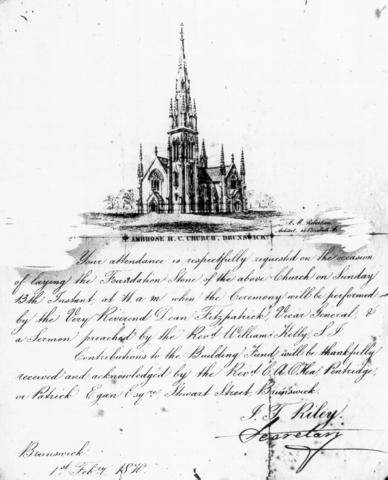 St AMBROSE R. C. CHURCH, BRUNSWICK.
Your attendance is respectfully requested on the occasion
of laying the Foundation Stone of the above Church on Sunday
13th Instant, at 11 a m when the Ceremony will be performed
by the Very Reverend Dean Fitzpatrick, Vicar General, &
a Sermon preached by the Revd William Kelly, S.J.
Contributions to the Building Fund will be thankfully
received and acknowledged by the Revd E. A. O'Hea Pentridge,
or Patrick Egan Esqre, Stewart Street, Brunswick.
J. T. Riley.
Secretary
Brunswick
1st Feby 1870.